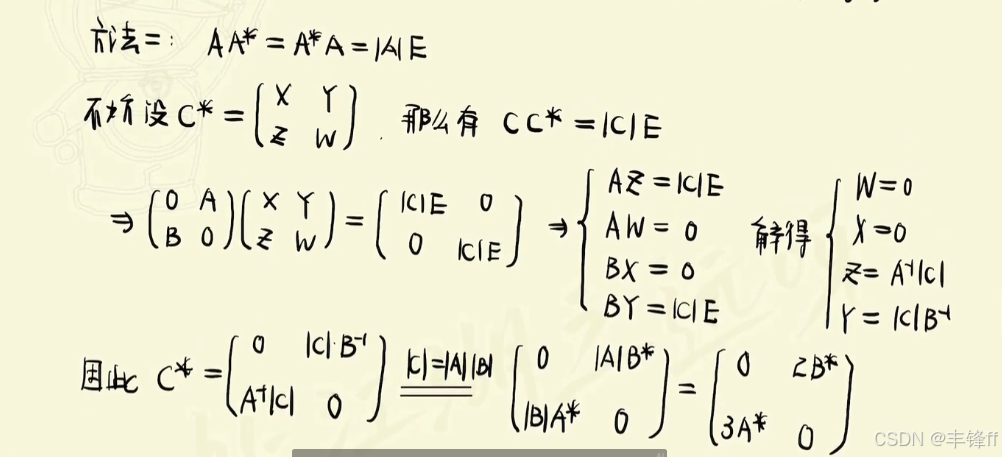 方法二: AA* = A*A = |A|E
不妨设 C* = (X Y; Z W). 那么有 CC* = |C|E
⇒ (0 A; B 0)(X Y; Z W) = (|C|E 0; 0 |C|E) ⇒ { AZ = |C|E; AW = 0; BX = 0; BY = |C|E 解得 { W = 0; X = 0; Z = A⁻¹|C|; Y = |C|B⁻¹
因此 C* = (0 |C|·B⁻¹; A⁻¹|C| 0) |C|=|A||B| (0 |A|B*; |B|A* 0) = (0 2B*; 3A* 0)
CSDN @丰锋ff